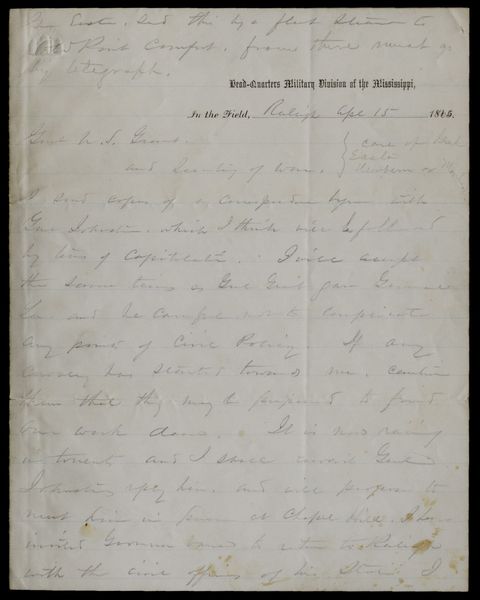 Gen Easton, Send this by a fleet Steamer to
Old Point Comfort. from there must go
by telegraph.
Head-Quarters Military Division of the Mississippi,
In the Field, Raleigh Apl 15 1865.
Genl U. S. Grant.
care of Genl
Easton
and Secretary of War.
Newbern or
I send copies of a correspondence begun with
Gen Johnston, which I think will be followed
by terms of Capitulation. I will accept
the same terms as Genl Grant gave General
Lee, and be careful not to complicate
any points of Civil Policy. If any
cavalry has started towards me, caution
them that they may be prepared to find
our work done. It is now raining
in torrents and I shall await Genl
Johnston's reply here, and will propose to
meet him in person at Chapel Hill. I have
invited Governor Vance to return to Raleigh
with the civil officers of his State. I